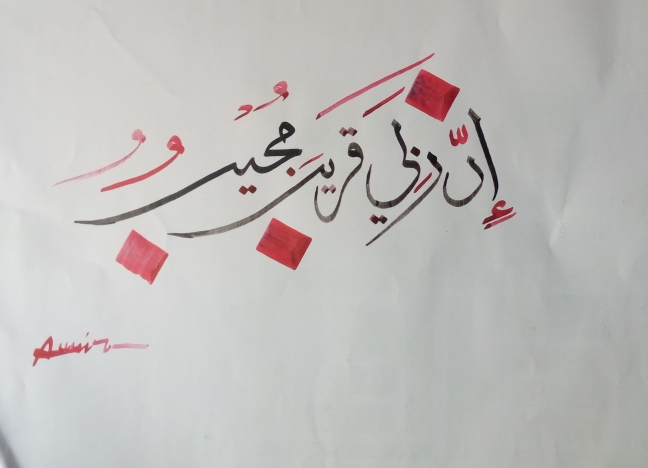 إِنَّ رَبِّي قَرِيبٌ مُجِيبٌ
Amir